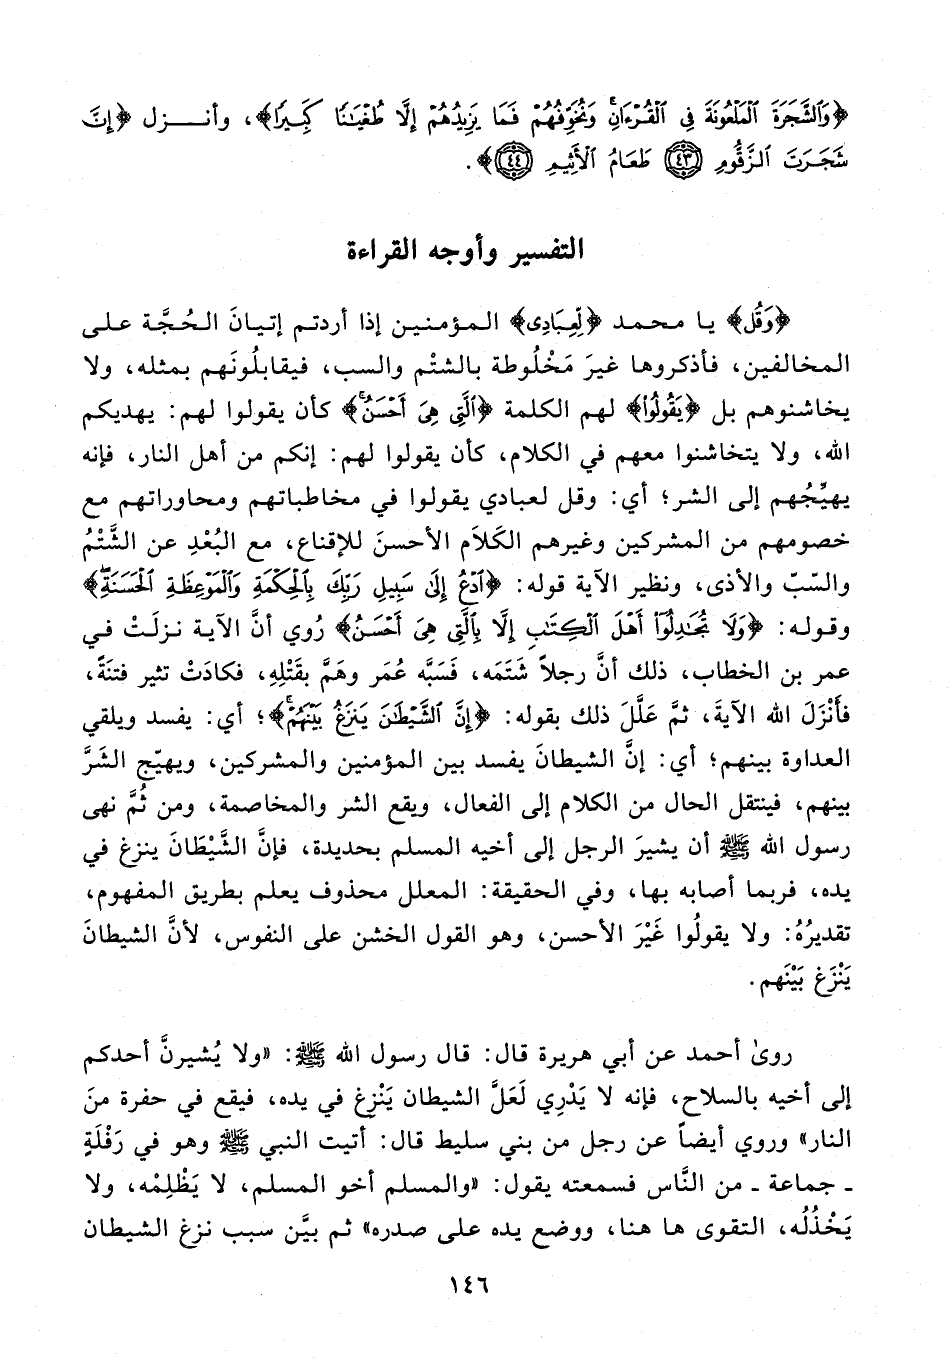 ﴿وَالشَّجَرَةَ الْمَلْعُونَةَ فِي الْقُرْءَانِ وَنُخَوِّفُهُمْ فَمَا يَزِيدُهُمْ إِلَّا طُغْيَانًا كَبِيرًا﴾، وأنــزل ﴿إِنَّ
شَجَرَتَ الزَّقُّومِ ٤٣ طَعَامُ الْأَثِيمِ ٤٤﴾.
التفسير وأوجه القراءة
﴿وَقُل﴾ يا محمد ﴿لِّعِبَادِى﴾ المؤمنين إذا أردتم إتيانَ الحُجَّة على
المخالفين، فأذكروها غيرَ مَخْلُوطة بالشتْم والسب، فيقابلُونَهم بمثله، ولا
يخاشنوهم بل ﴿يَقُولُوا﴾ لهم الكلمة ﴿الَّتِي هِيَ أَحْسَنُ﴾ كأن يقولوا لهم: يهديكم
الله، ولا يتخاشنوا معهم في الكلام، كأن يقولوا لهم: إنكم من أهل النار، فإنه
يهيِّجُهم إلى الشر؛ أي: وقل لعبادي يقولوا في مخاطباتهم ومحاوراتهم مع
خصومهم من المشركين وغيرهم الكَلاَم الأحسنَ للإقناع، مع البُعْدِ عن الشَّتْمُ
والسّبّ والأذى، ونظير الآية قوله: ﴿ادْعُ إِلَى سَبِيلِ رَبِّكَ بِالْحِكْمَةِ وَالْمَوْعِظَةِ الْحَسَنَةِ﴾
وقوله: ﴿وَلَا تُجَادِلُوا أَهْلَ الْكِتَابِ إِلَّا بِالَّتِي هِيَ أَحْسَنُ﴾ رُوي أنَّ الآية نزلَتْ في
عمر بن الخطاب، ذلك أنَّ رجلاً شَتَمَه، فَسَبَّه عُمَر وهَمَّ بقَتْلِهِ، فكادَتْ تثير فتنَةً،
فأَنْزَلَ الله الآيةَ، ثمَّ عَلَّلَ ذلك بقوله: ﴿إِنَّ الشَّيْطَانَ يَنزَغُ بَيْنَهُمْ﴾؛ أي: يفسد ويلقي
العداوة بينهم؛ أي: إنَّ الشيطانَ يفسد بين المؤمنين والمشركين، ويهيّج الشَرَّ
بينهم، فينتقل الحال من الكلام إلى الفعال، ويقع الشر والمخاصمة، ومن ثُمَّ نهى
رسول الله ﷺ أن يشيرَ الرجل إلى أخيه المسلم بحديدة، فإنَّ الشَّيْطَانَ ينزغ في
يده، فربما أصابه بها، وفي الحقيقة: المعلل محذوف يعلم بطريق المفهوم،
تقديرُهُ: ولا يقولُوا غَيْرَ الأحسن، وهو القول الخشن على النفوس، لأنَّ الشيطانَ
يَنْزَغ بَيْنَهم.
روىٰ أحمد عن أبي هريرة قال: قال رسول الله ﷺ: «ولا يُشيرنَّ أحدكم
إلى أخيه بالسلاح، فإنه لا يَدْرِي لَعَلَّ الشيطان يَنْزِغ في يده، فيقع في حفرة منَ
النار» وروي أيضاً عن رجل من بني سليط قال: أتيت النبي ﷺ وهو في رَفْلَةٍ
ـ جماعة ـ من النَّاس فسمعته يقول: «والمسلم أخو المسلم، لا يَظْلِمْه، ولا
يَخْذُلُه، التقوى ها هنا، ووضع يده على صدره» ثم بيَّن سبب نزغ الشيطان
١٤٦